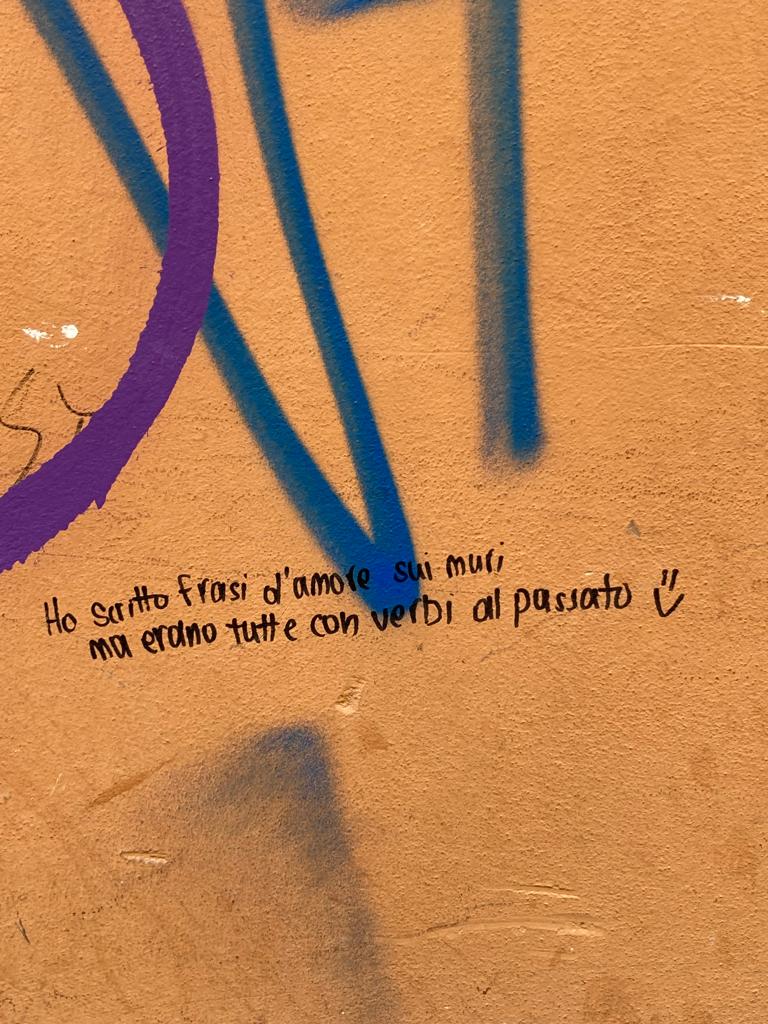 Ho scritto frasi d'amore sui muri
ma erano tutte con verbi al passato